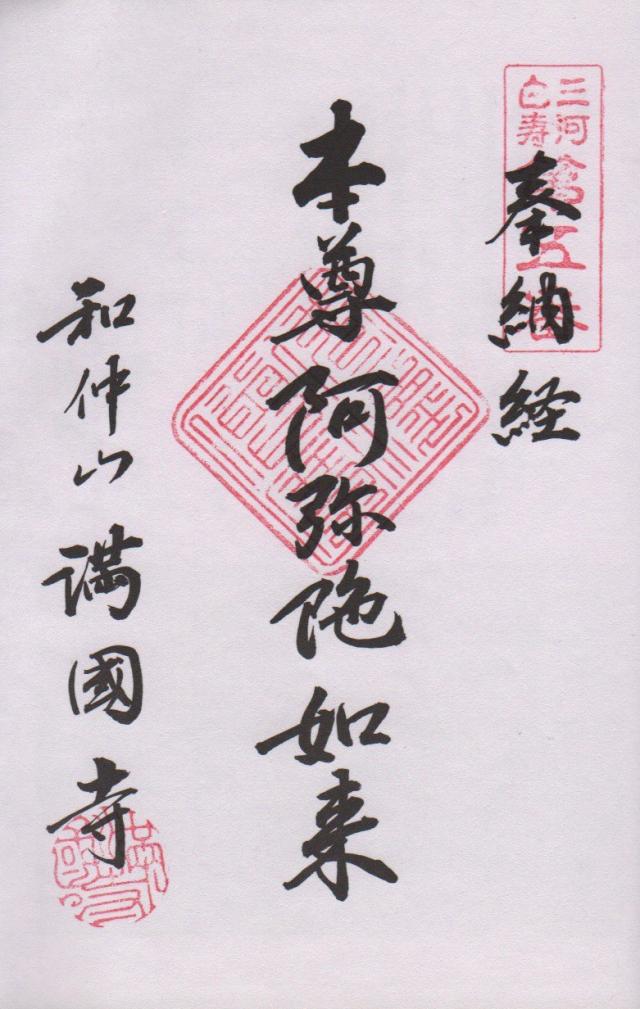 三河
白寿
第五番
奉納経
本尊阿弥陀如来
和仲山満國寺